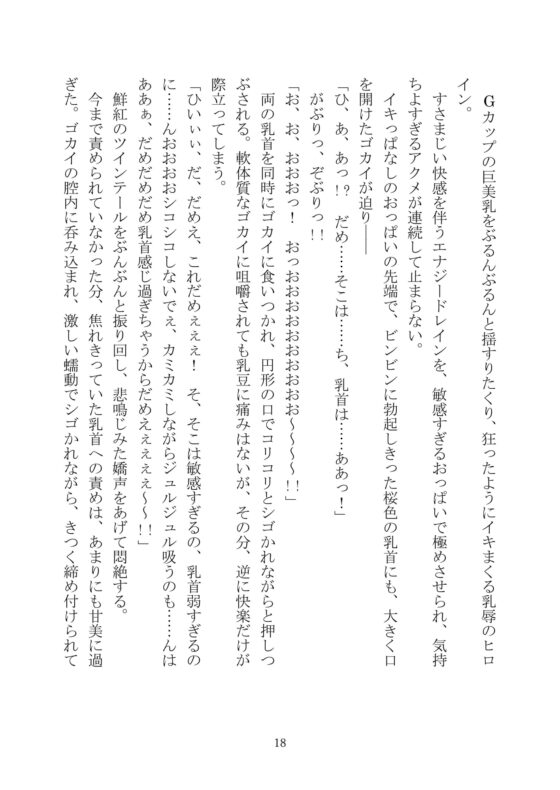 Gカップの巨美乳をぶるんぶるんと揺すりたくり、狂ったようにイキまくる乳辱のヒロ
イン。
すさまじい快感を伴うエナジードレインを、敏感すぎるおっぱいで極めさせられ、気持
ちよすぎるアクメが連続して止まらない。
イキっぱなしのおっぱいの先端で、ビンビンに勃起しきった桜色の乳首にも、大きく口
を開けたゴカイが迫り――
「ひ、あ、あっ!? だめ……そこは……ち、乳首は……ああっ!」
がぶりっ、ぞぶりっ!!
「お、お、おおおっ! おっおおおおおおおおおおお～～～～!!」
両の乳首を同時にゴカイに食いつかれ、円形の口でコリコリとシゴかれながらと押しつ
ぶされる。軟体質なゴカイに咀嚼されても乳豆に痛みはないが、その分、逆に快楽だけが
際立ってしまう。
「ひいぃぃ、だ、だめえ、これだめぇぇぇ! そ、そこは敏感すぎるの、乳首弱すぎるの
に……んおおおおシコシコしないでぇ、カミカミしながらジュルジュル吸うのも……んは
ああぁ、だめだめだめ乳首感じ過ぎちゃうからだめえぇぇぇぇ～～!!」
鮮紅のツインテールをぶんぶんと振り回し、悲鳴じみた嬌声をあげて悶絶する。
今まで責められていなかった分、焦れきっていた乳首への責めは、あまりにも甘美に過
ぎた。ゴカイの腔内に呑み込まれ、激しい蠕動でシゴかれながら、きつく締め付けられて
18